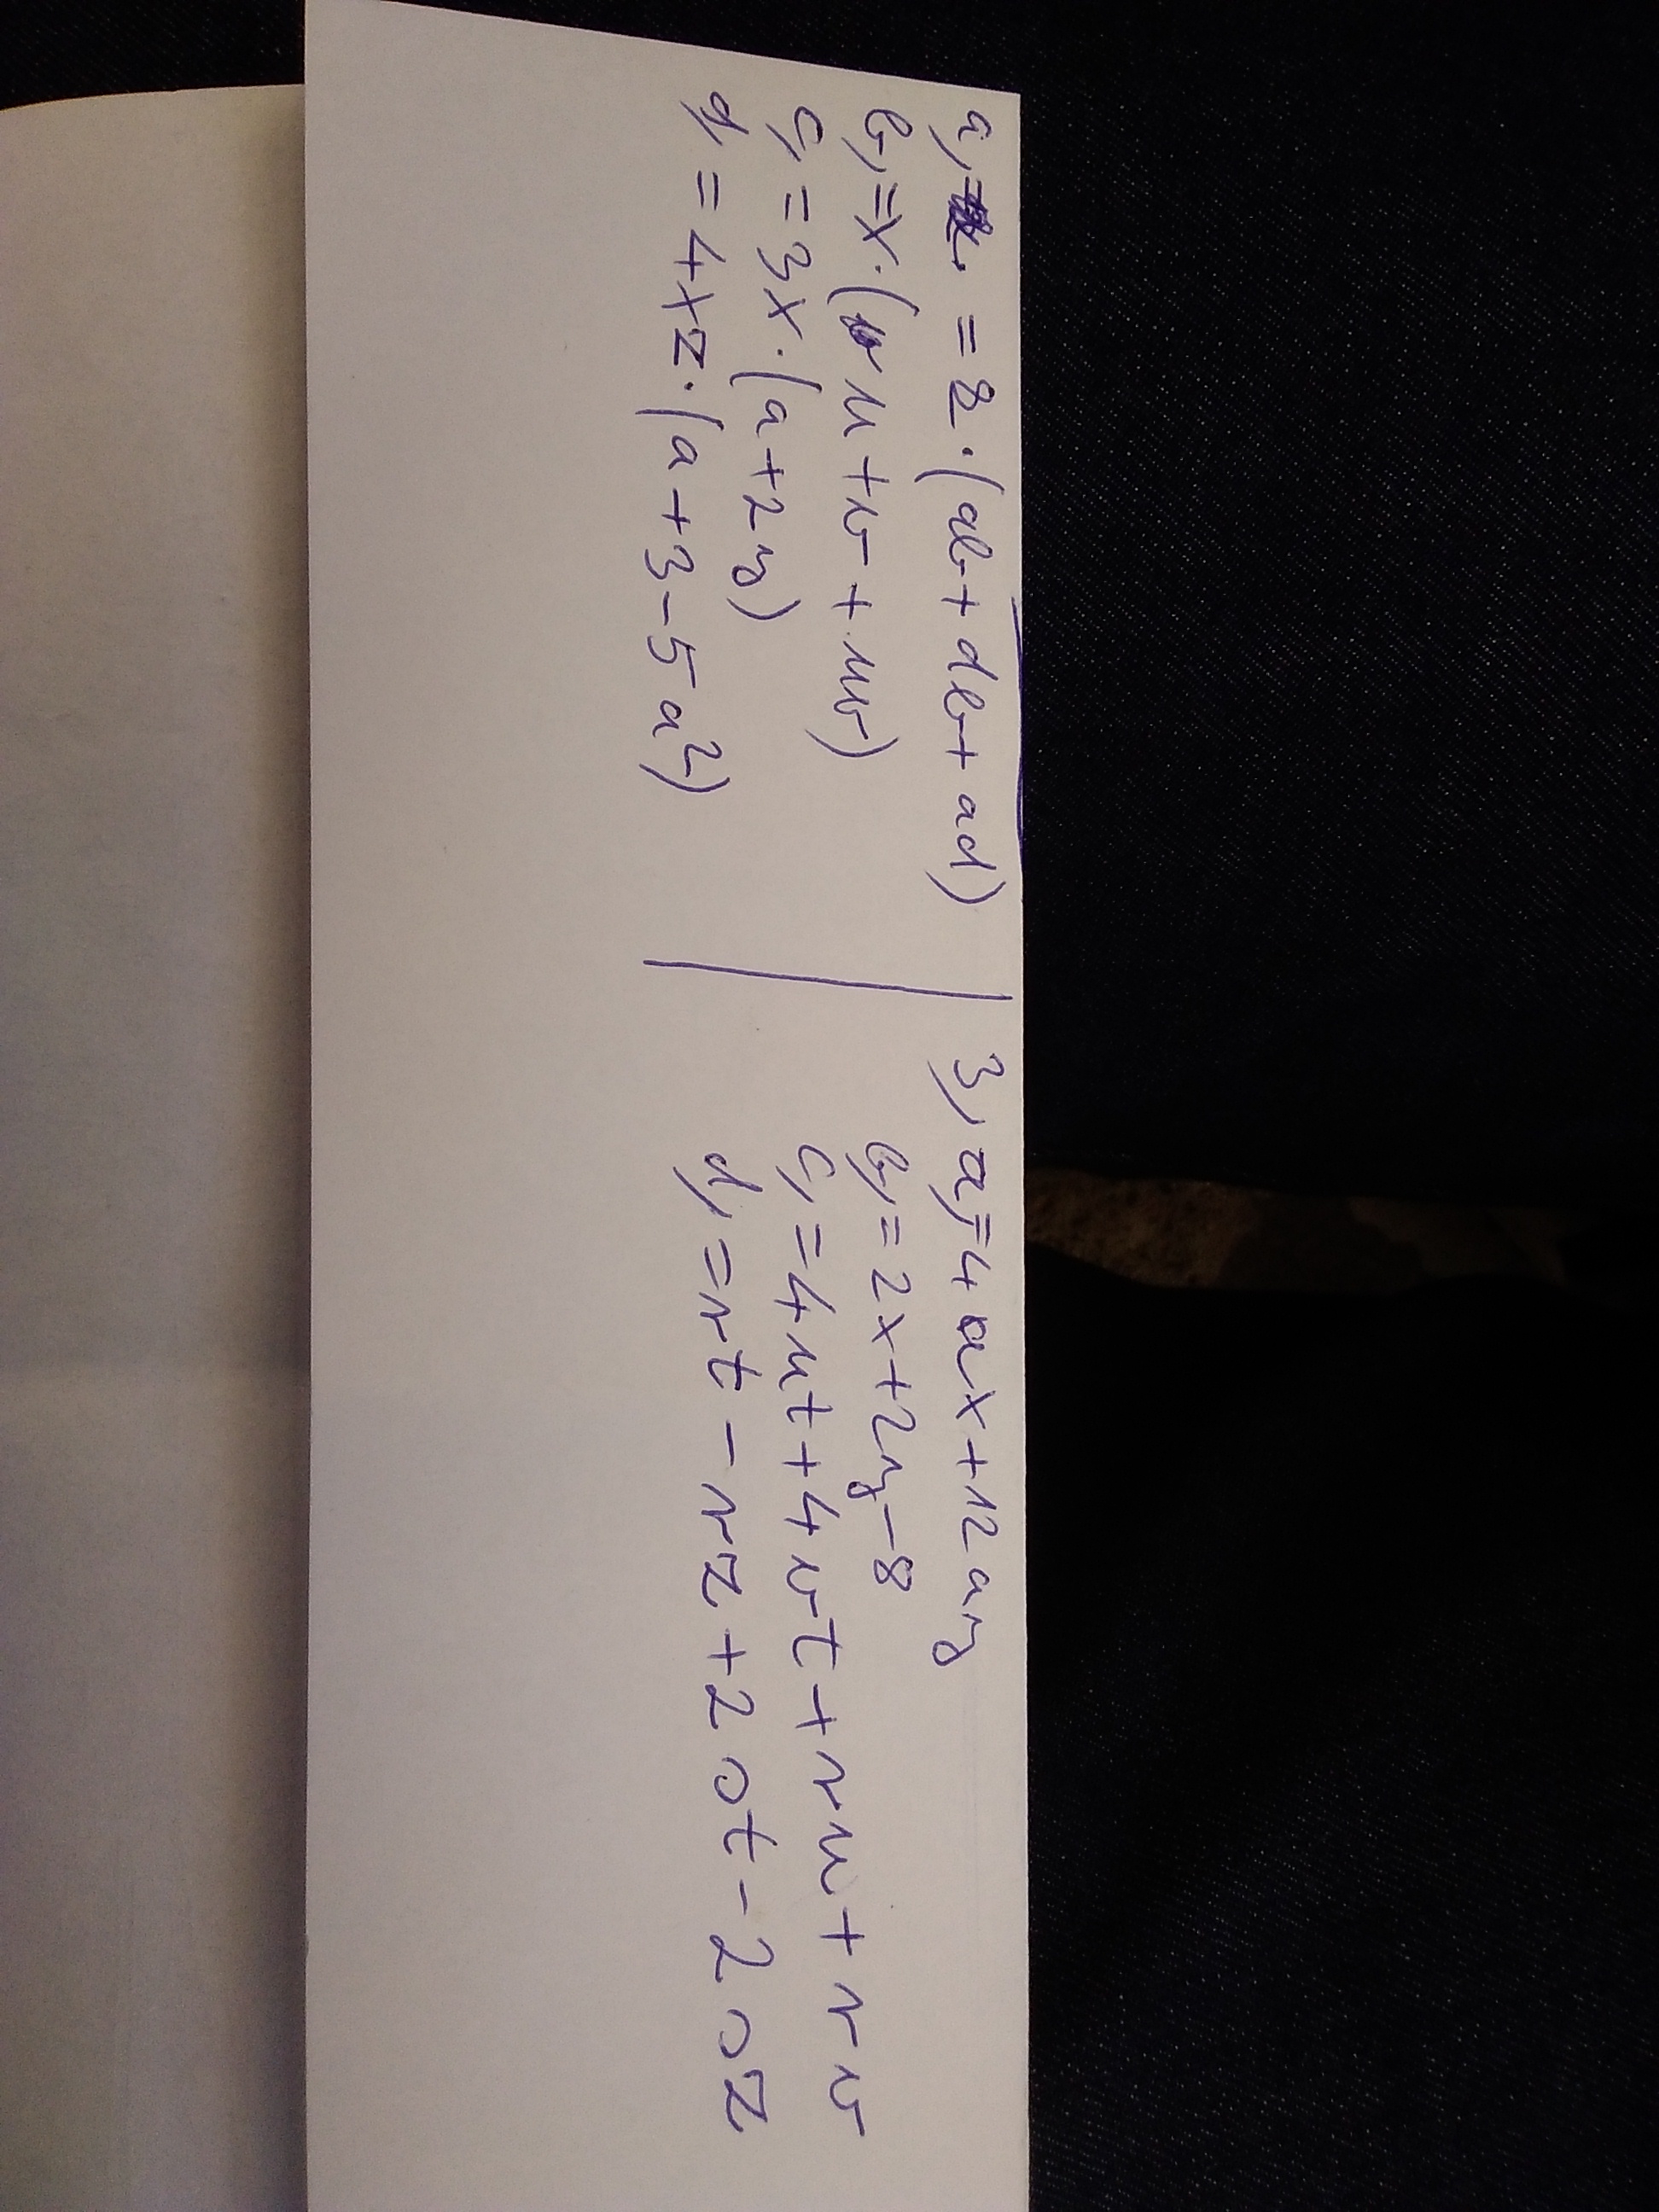 a, = 2·(ab+db+ad)
b, =x·(u+v+uv)
c, = 3x·(a+2y)
d, = 4xz·(a+3-5a²)
3, a, =4ax+12ay
b, =2x+2y-8
c, =4ut+4vt+ru+rv
d, =rt-rz+2ot-2oz